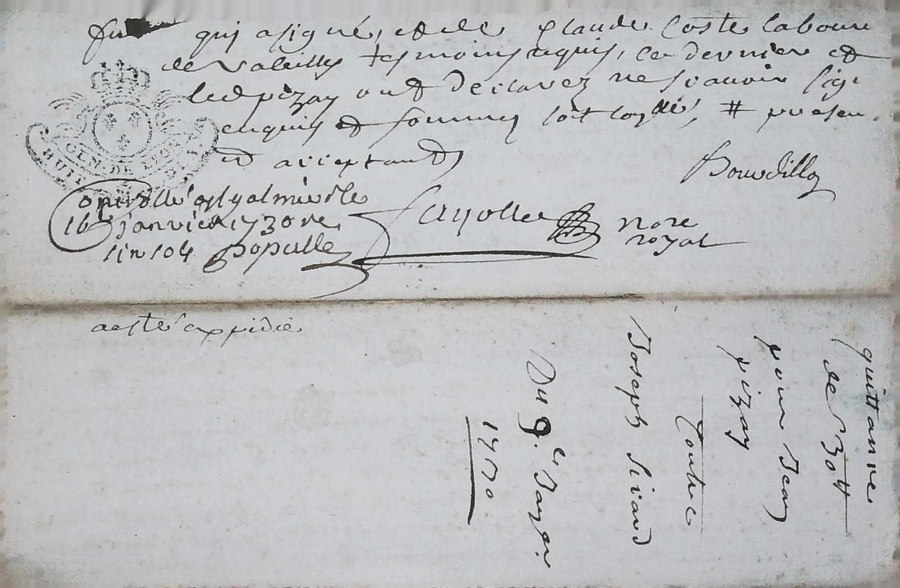 qui a signé, et de Claude Coste laboure
de Valeilly tesmoins requis, ce dernier et
led pizay ont declarez ne scavoir sig
enquis et sommez soit controllé, # presen
acceptant
Bourdillon
GEN. DE LYON
16 janvier 1730 re
12 s 10d populle
Fayolle nore
royal
a esté expédié
quittance
de 130 tt
pour Jean
pizay
Contre
Joseph Sirand
Du 9e Janer.
1730